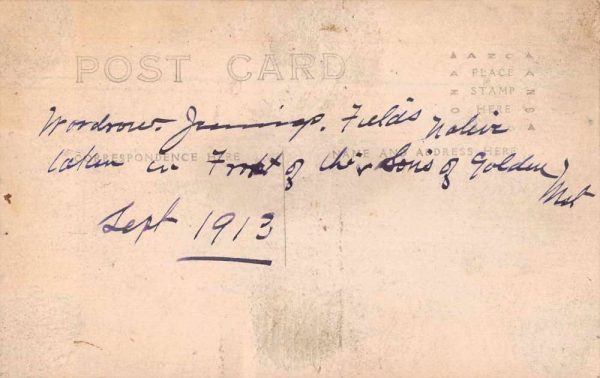 POST CARD
PLACE
STAMP
HERE
Woodrow. Jennings. Fields Native
CORRESPONDENCE HERE
NAME AND ADDRESS HERE
taken in Front of the Sons of Golden West
Sept 1913